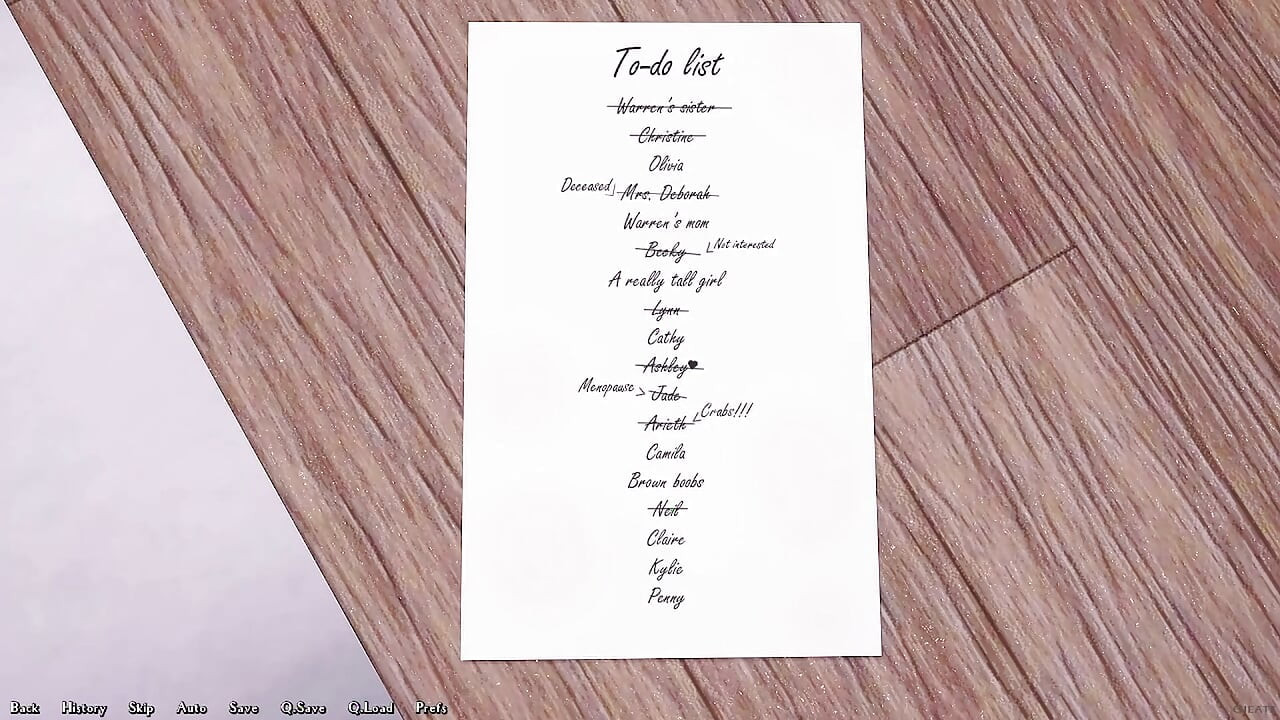 To-do list
Warren's sister
Christine
Olivia
Deceased Mrs. Deborah
Warren's mom
Becky Not interested
A really tall girl
Lynn
Cathy
Ashley♥
Menopause > Jade
Arieth Crabs!!!
Camila
Brown boobs
Neil
Claire
Kylie
Penny
Back History Skip Auto Save Q.Save Q.Load Prefs